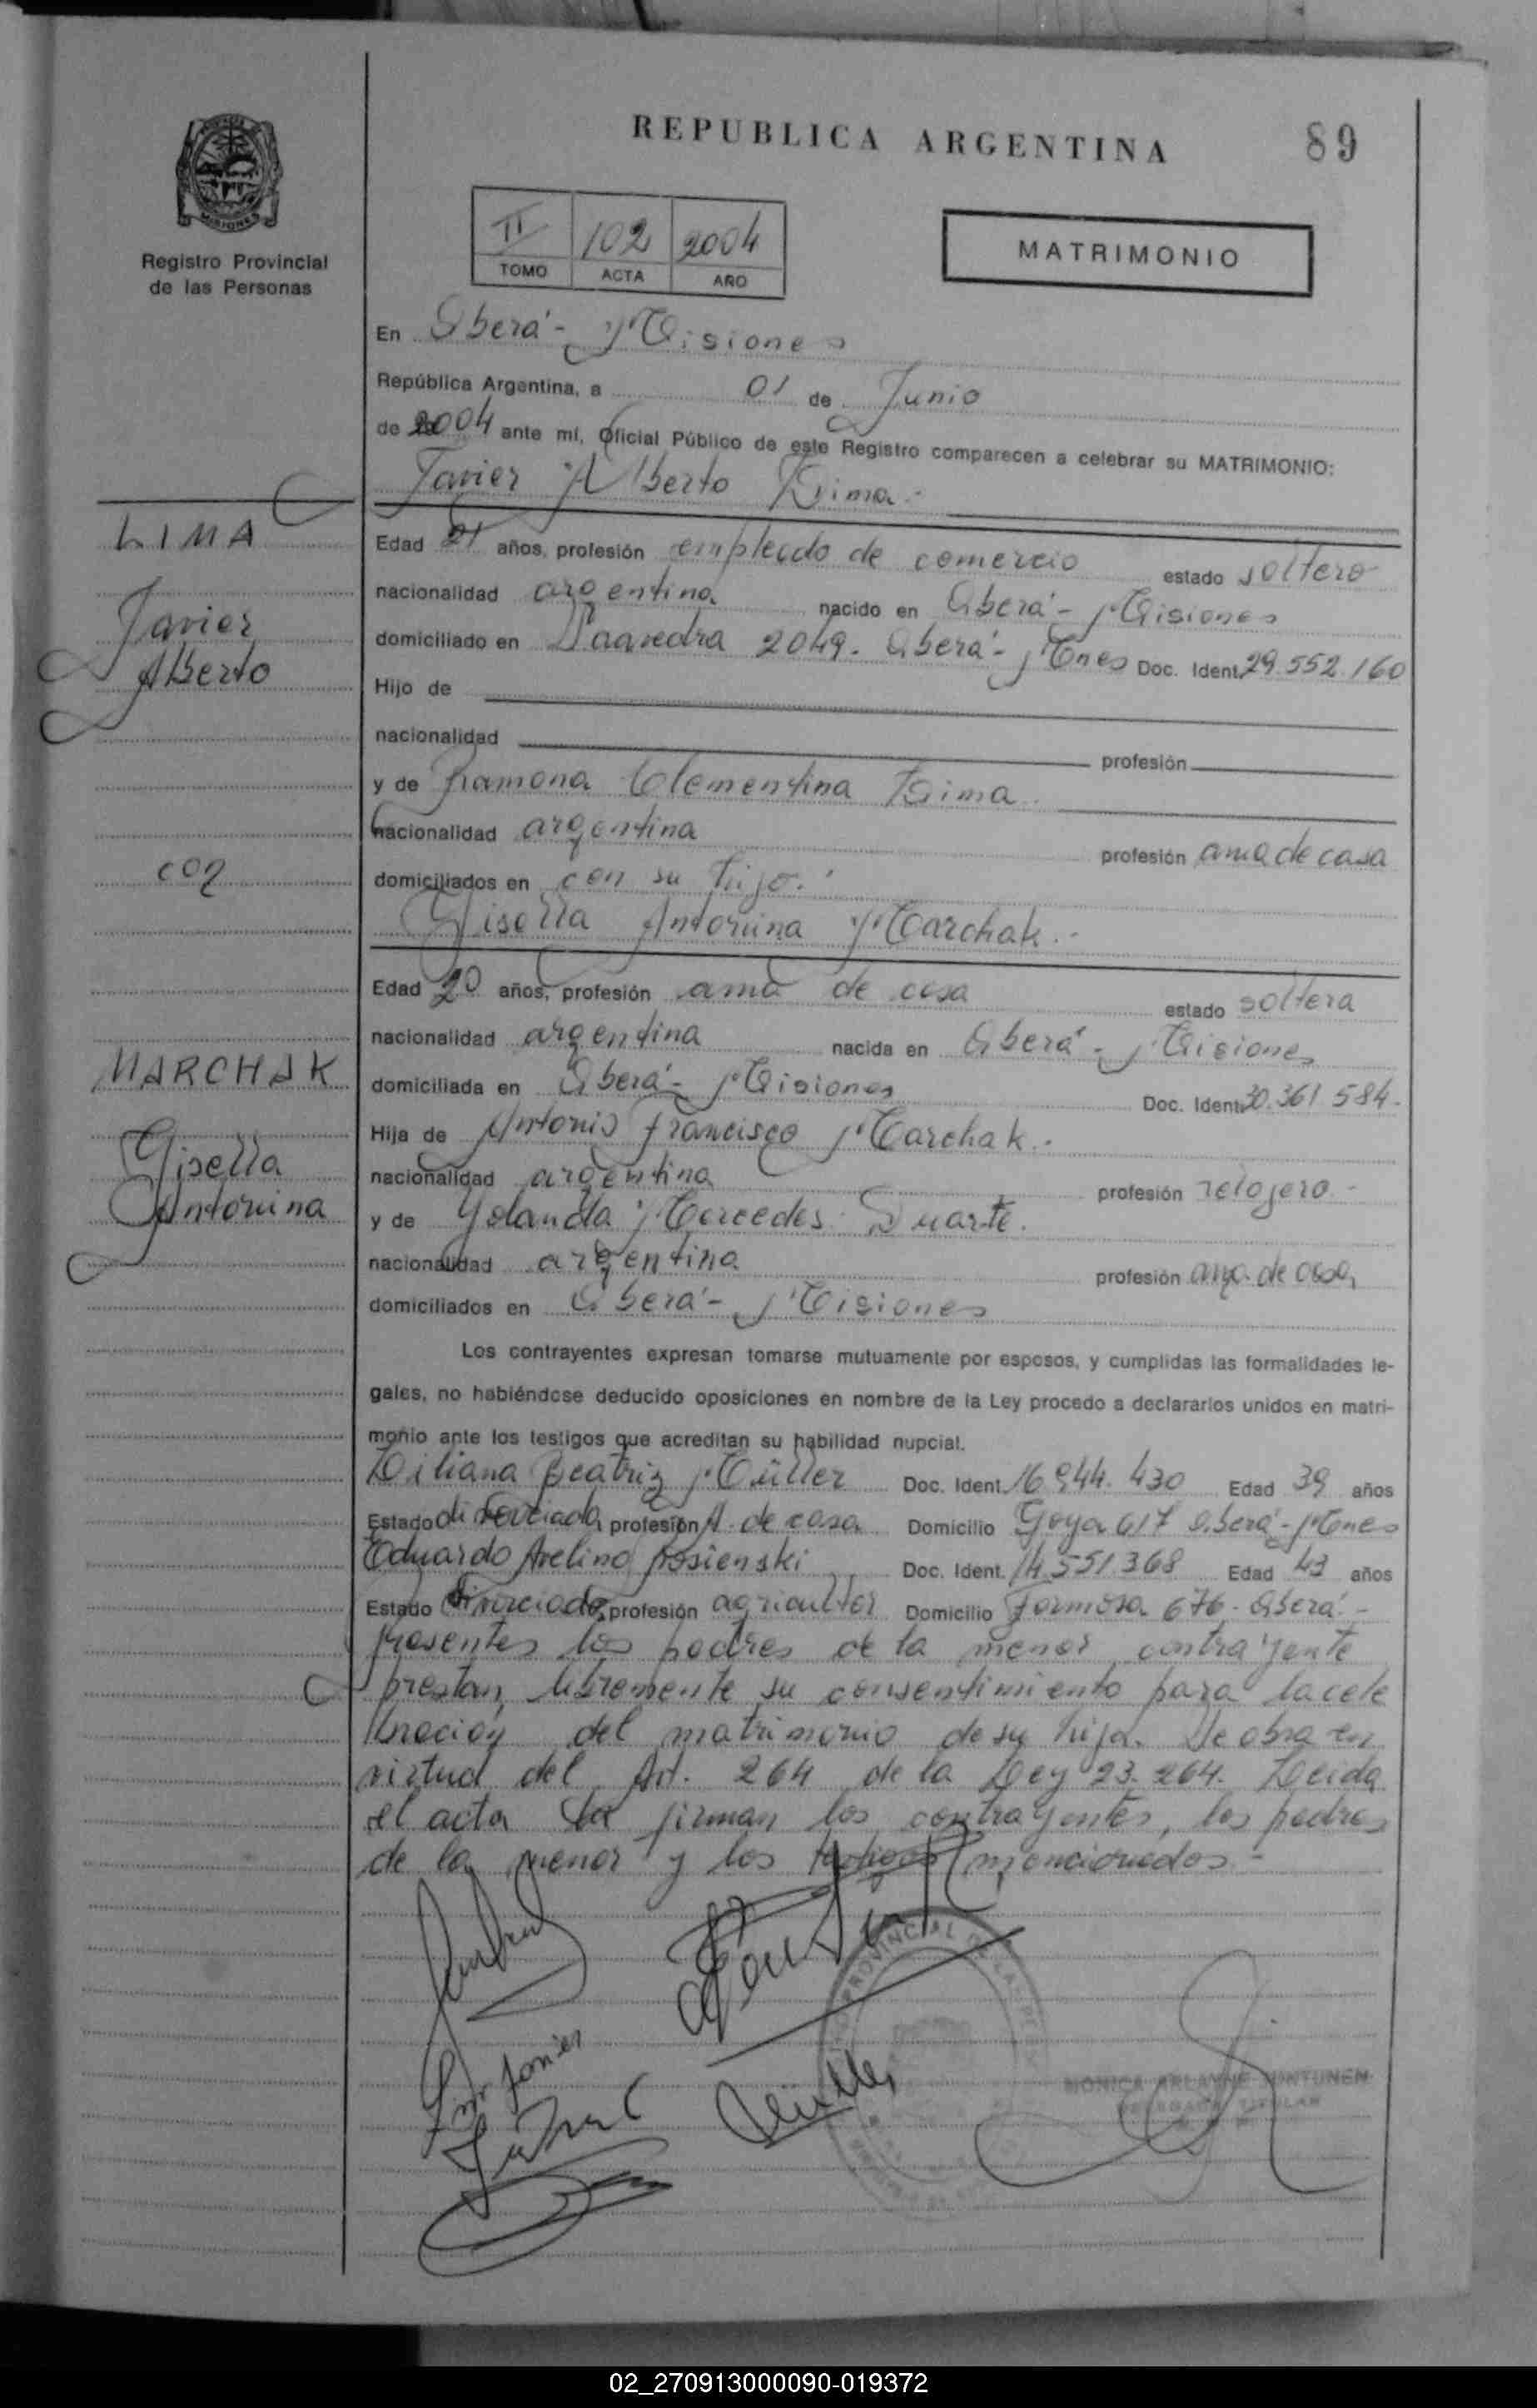 REPUBLICA ARGENTINA
89
MISIONES
Registro Provincial
de las Personas
II 102 2004
TOMO ACTA AÑO
MATRIMONIO
En Oberá - Misiones
República Argentina, a 01 de Junio
de 2004 ante mí, Oficial Público de este Registro comparecen a celebrar su MATRIMONIO:
Javier Alberto Lima.-
LIMA
Javier
Alberto
Edad 21 años, profesión empleado de comercio estado soltero
nacionalidad argentina nacido en Oberá - Misiones
domiciliado en Saavedra 2049. Oberá - Mnes Doc. Ident. 29.552.160
Hijo de
nacionalidad profesión
y de Ramona Clementina Lima.
nacionalidad argentina profesión ama de casa
con
domiciliados en con su hijo.
Gisella Antonina Marchak.-
Edad 20 años, profesión ama de casa estado soltera
nacionalidad argentina nacida en Oberá - Misiones
MARCHAK
Gisella
Antonina
domiciliada en Oberá - Misiones Doc. Ident. 30.361.584.
Hija de Antonio Francisco Marchak.
nacionalidad argentina profesión relojero.-
y de Yolanda Mercedes Duarte.
nacionalidad argentina profesión ama de casa
domiciliados en Oberá - Misiones
Los contrayentes expresan tomarse mutuamente por esposos, y cumplidas las formalidades le-
gales, no habiéndose deducido oposiciones en nombre de la Ley procedo a declararlos unidos en matri-
monio ante los testigos que acreditan su habilidad nupcial.
Liliana Beatriz Müller Doc. Ident. 16.944.430 Edad 39 años
Estado divorciada profesión A. de casa Domicilio Goya 617 Oberá - Mnes
Eduardo Avelino Rosienski Doc. Ident. 14.551.368 Edad 43 años
Estado divorciado profesión agricultor Domicilio Formosa 676 - Oberá.-
Presentes los padres de la menor contrayente
prestan libremente su consentimiento para la cele
bración del matrimonio de su hija. Se obra en
virtud del Art. 264 de la Ley 23.264. Leída
el acta la firman los contrayentes, los padres
de la menor y los testigos mencionados.-
Javier
Müller
PROVINCIAL DE LAS
MONICA
TITULAR
02_270913000090-019372